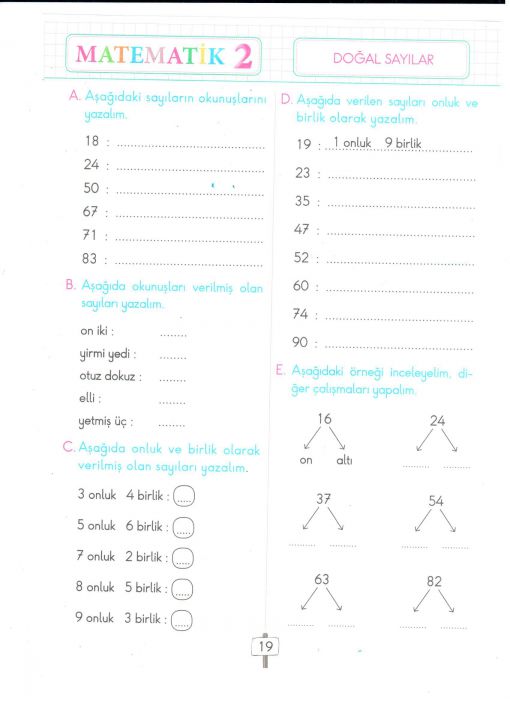 MATEMATİK 2
DOĞAL SAYILAR
A. Aşağıdaki sayıların okunuşlarını
yazalım.
18 : ..............................
24 : ..............................
50 : ..............................
67 : ..............................
71 : ..............................
83 : ..............................
B. Aşağıda okunuşları verilmiş olan
sayıları yazalım.
on iki : ........
yirmi yedi : ........
otuz dokuz : ........
elli : ........
yetmiş üç : ........
C. Aşağıda onluk ve birlik olarak
verilmiş olan sayıları yazalım.
3 onluk 4 birlik : .....
5 onluk 6 birlik : .....
7 onluk 2 birlik : .....
8 onluk 5 birlik : .....
9 onluk 3 birlik : .....
D. Aşağıda verilen sayıları onluk ve
birlik olarak yazalım.
19 : 1 onluk 9 birlik
23 : ..............................
35 : ..............................
47 : ..............................
52 : ..............................
60 : ..............................
74 : ..............................
90 : ..............................
E. Aşağıdaki örneği inceleyelim, di-
ğer çalışmaları yapalım.
16 24
on altı ........ ........
37 54
........ ........ ........ ........
63 82
........ ........ ........ ........
19